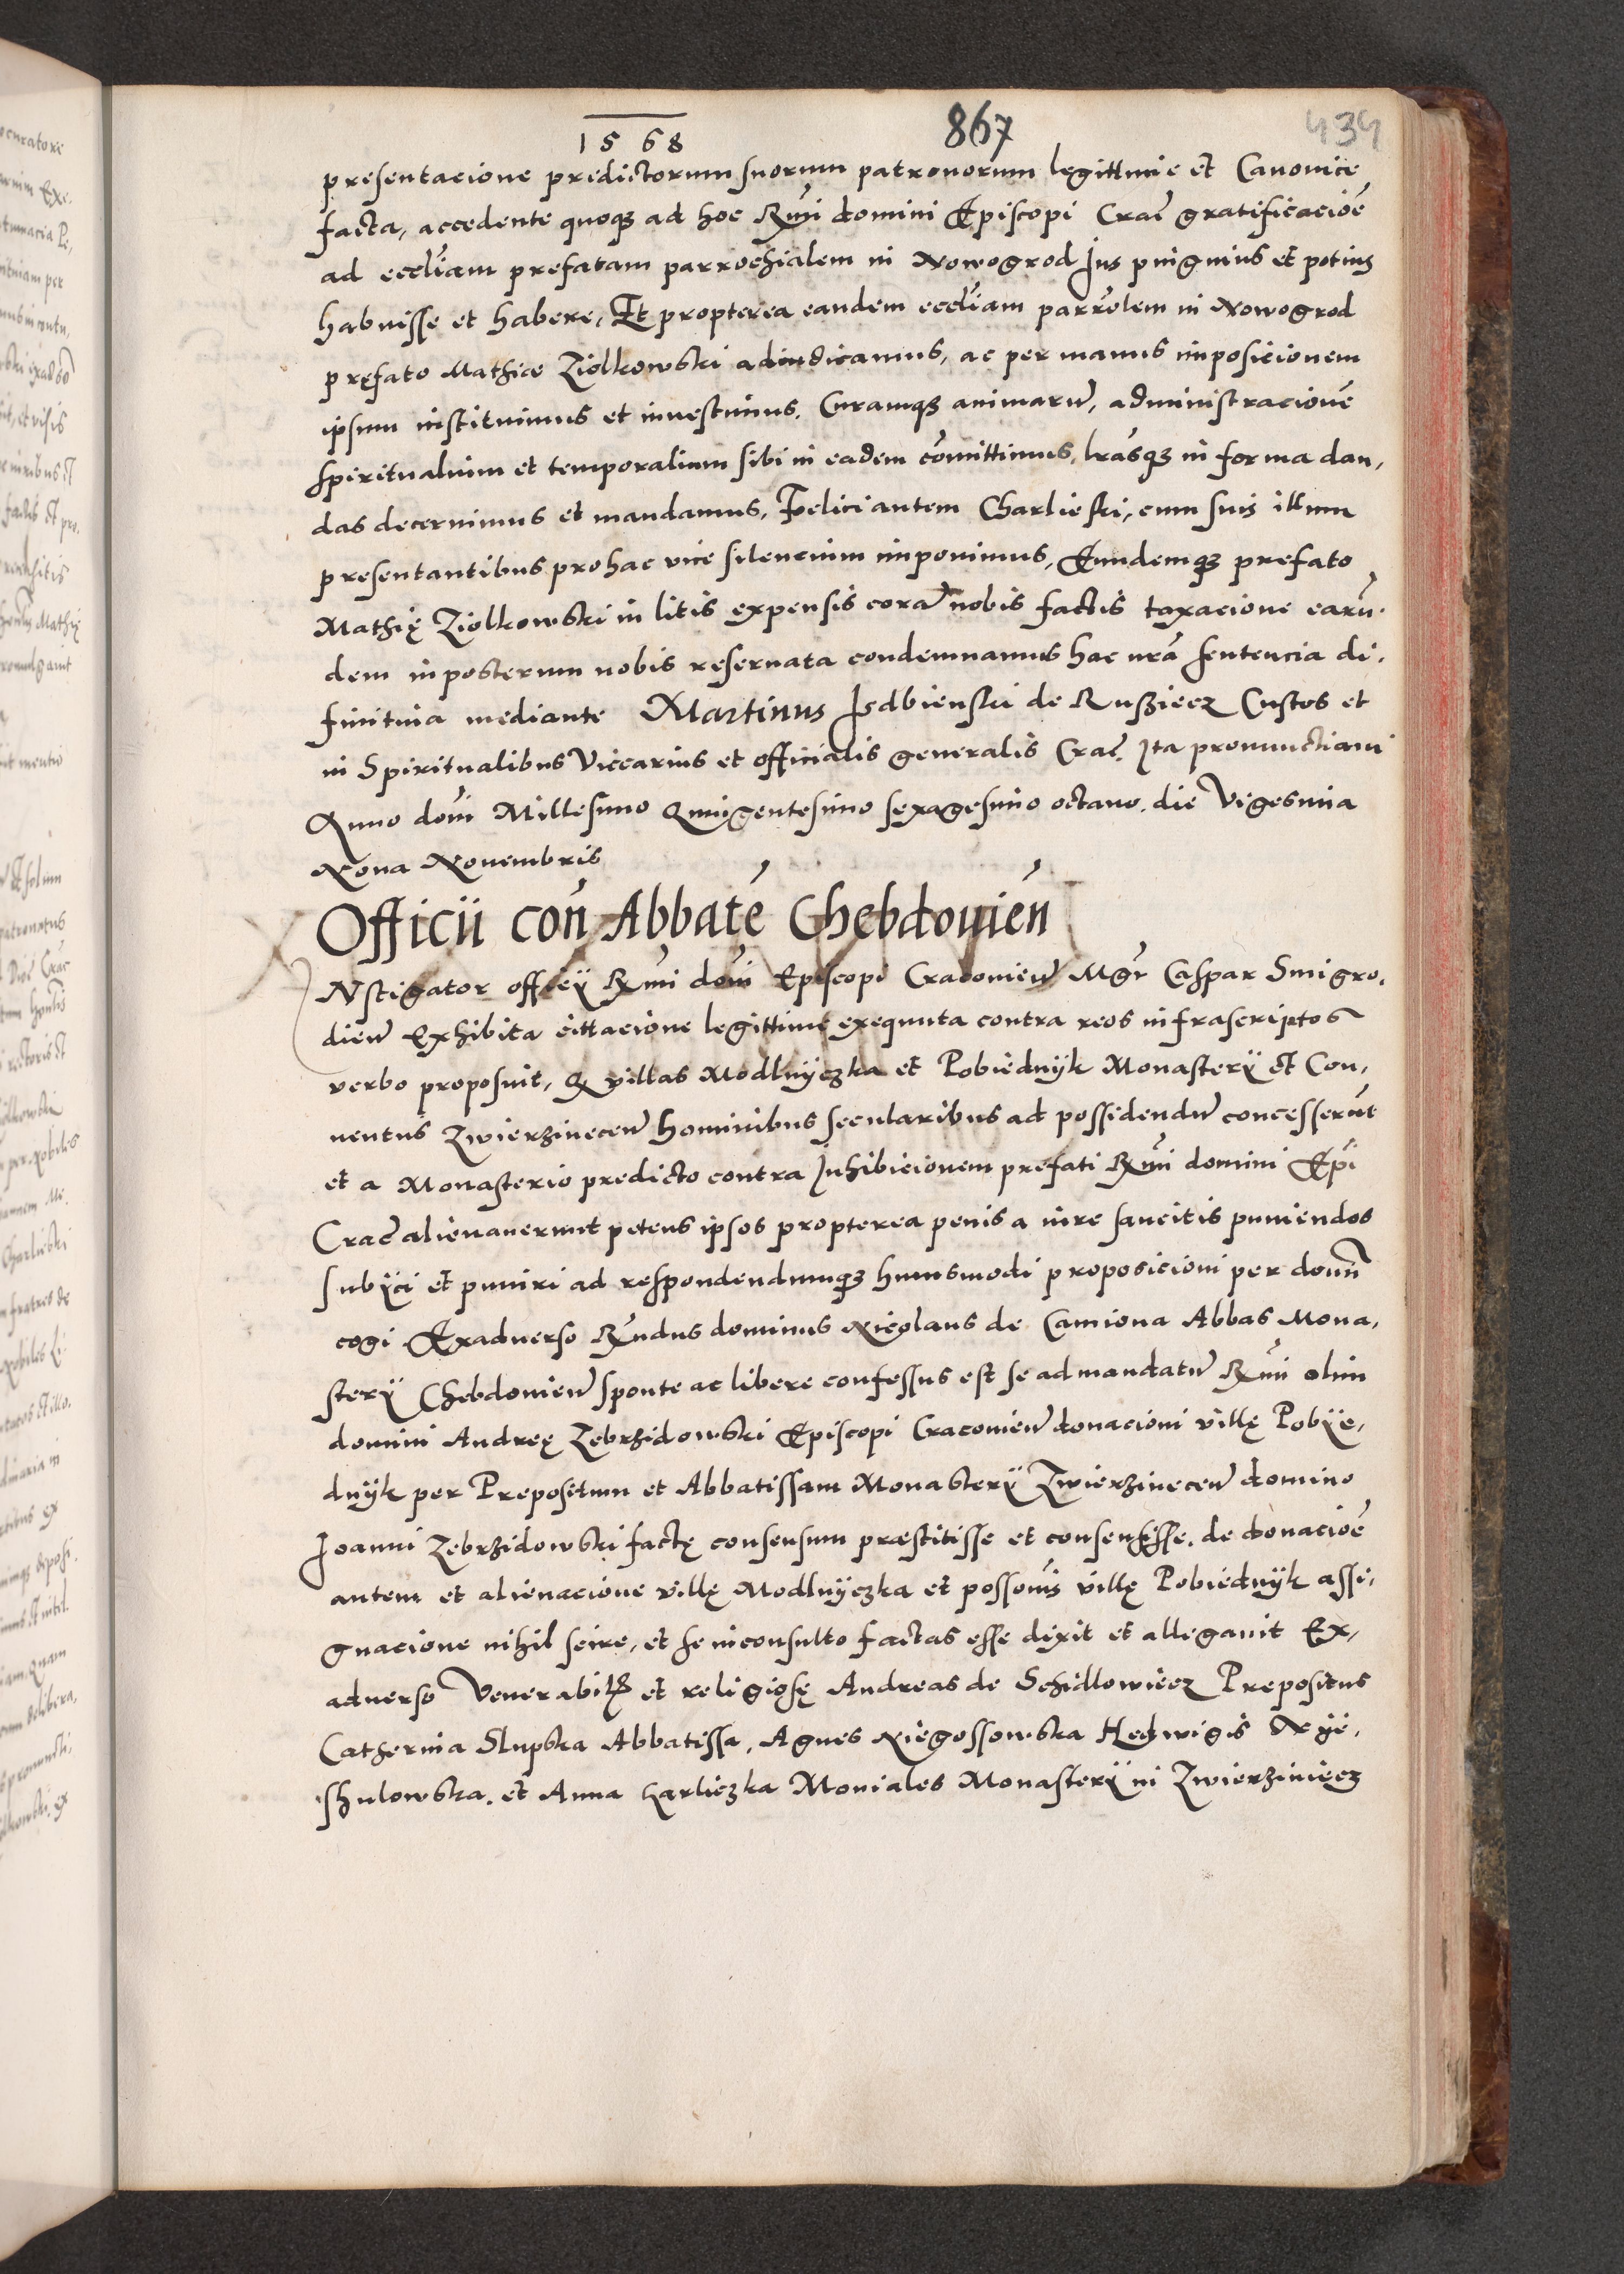 1568
867
434
presentacione predictorum suorum patronorum legittime et Canonice
facta, accedente quoqȝ ad hoc Rm̃i domini Episcopi Crac̃ gratificacioẽ
ad eccl̃iam prefatam parrochialem in Nowogrod Jus pinguius et potius
habuisse et habere, Et propterea eandem eccl̃iam parrolem in Nowogrod
pręfato Mathiæ Ziolkowski adiudicamus, ac per manus imposicionem
ipsum instituimus et inuestimus. Curamqȝ animarũ, administracionẽ
spiritualium et temporalium sibi in eadem cõmittimus, lrãsqȝ in forma dan,
das decernimus et mandamus, Felici autem Charlieski, cum suis illum
presentantibus pro hac vice silencium imponimus, Eundemqȝ prefato
Mathię Ziolkowski in litis expensis corã nobis factis taxacione earũ.
dem inposterum nobis reseruata condemnamus hac nrã sentencia di.
finitiua mediante Martinus Isdbienski de Rusziecz Custos et
in Spiritualibus Viccarius et officialis generalis Crac̃. Ita pronunctiaui
Anno dom̃i Millesimo Quingentesimo sexagesimo octauo. die Vigesima
Nona Nouembris
Officii con̄ Abbatē Chebdouien̄
Nstigator officÿ Rm̃i dom̃i Episcopi Cracouien̄ Mgr̃ Caspar Smigro.
dien̄ Exhibita cittacione legittime exequuta contra reos infrascriptos
verbo proposuit, Q villas Modlnÿczka et Pobiednÿk Monasterÿ et Con,
uentus Zwierzinecen̄ hominibus secularibus ad possidendũ concesserũt
et a Monasterio predicto contra Inhibicionem prefati Rm̃i domini Ep̃i
Crac̃ alienauerunt petens ipsos propterea penis a iure sancitis puniendos
subÿci et puniri ad respondendumqȝ huiusmodi proposicioni per domũ
cogi Exaduerso Rñdus dominus Nicolaus de Camiona Abbas Mona,
sterÿ Chebdouien̄ sponte ac libere confessus est se ad mandatũ Rm̃i olim
domini Andreę Zebrzidowski Episcopi Cracouien̄ donacioni villę Pobÿe,
dnÿk per Prepositum et Abbatissam Monasterÿ Zwierzinecen̄ domino
Joanni Zebrzidowski factę consensum præstitisse et consensisse. de donacioẽ
autem et alienacione villę Modlnÿczka et possonĩs villę Pobiednÿk assi,
gnacione nihil scire, et se inconsulto factas esse dixit et allegauit Ex,
aduerso Venerabiles et religiosę Andreas de Schidlowiecz Prepositus
Catherina Slupska Abbatissa, Agnes Niegossowska Hedwigis Nÿe,
shulowska. et Anna Karliczka Moniales Monasterÿ in Zwierziniecz